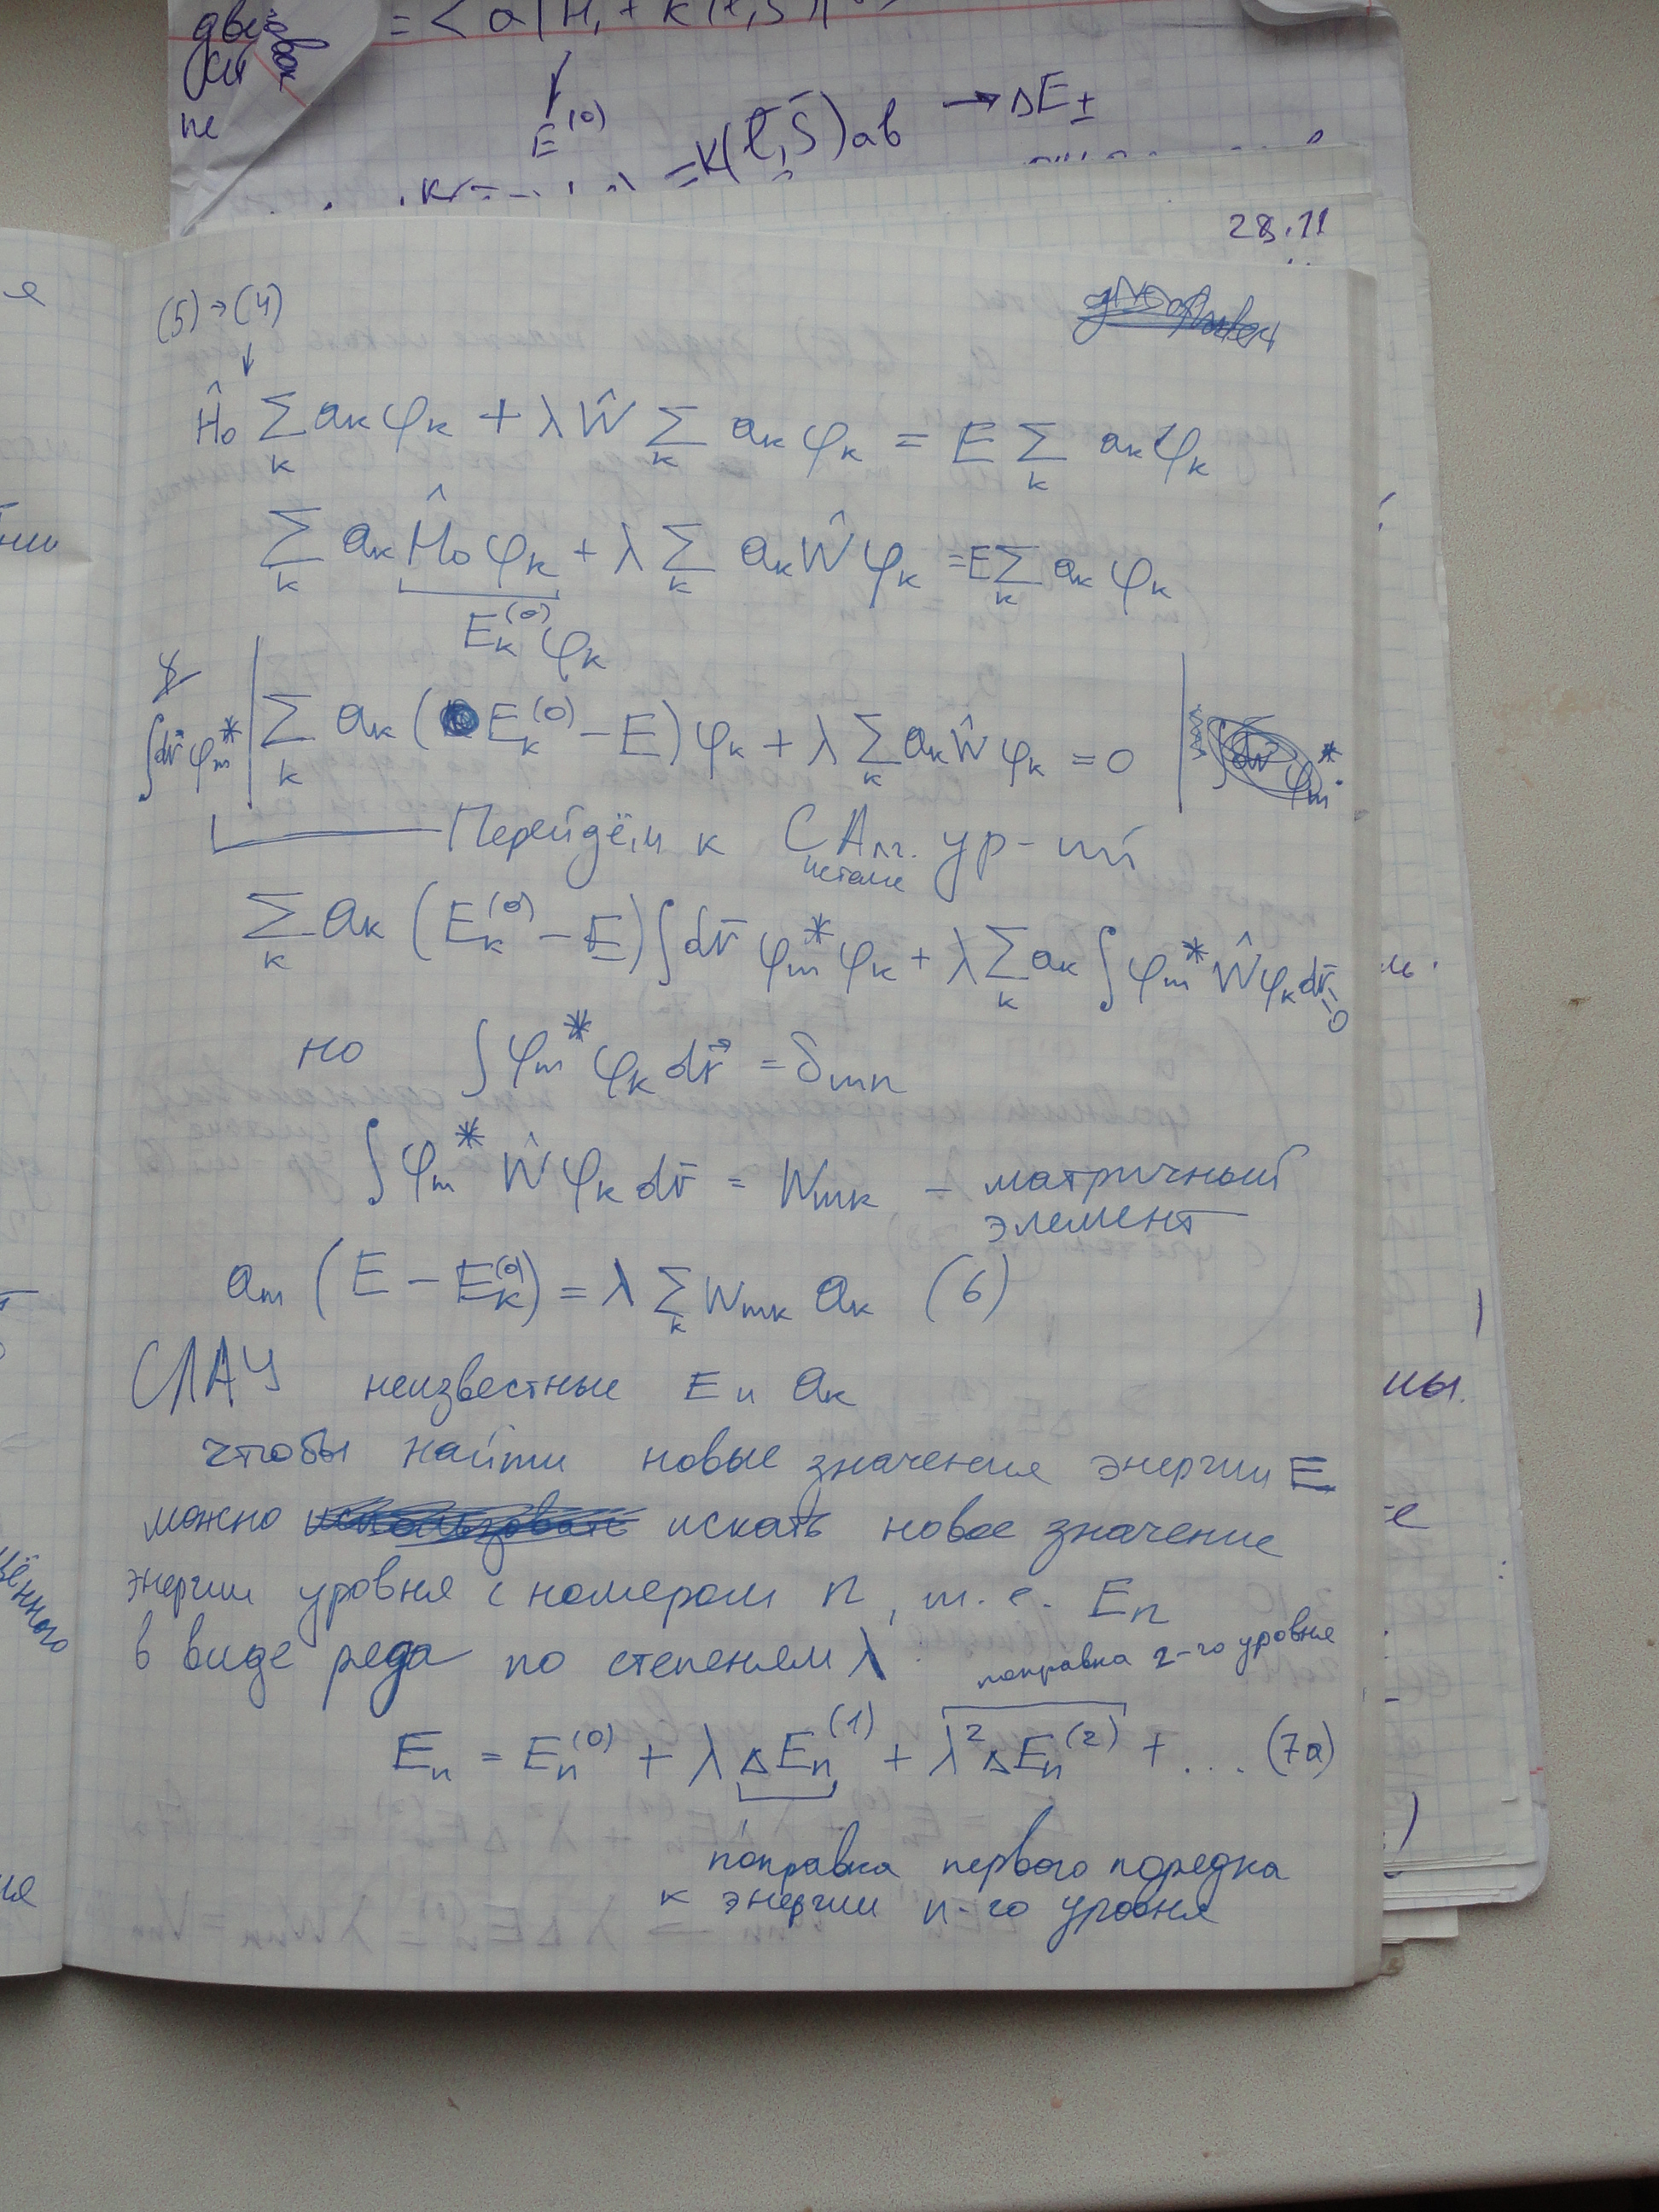 = <a|H₁ + K(l,S)|
E⁽⁰⁾
= K(l̄,S̄)ab → ΔE±
28.11
(5)→(4)
↓
Ĥ₀ ∑ₖ aₖφₖ + λŴ ∑ₖ aₖφₖ = E ∑ₖ aₖφₖ
∑ₖ aₖ Ĥ₀φₖ + λ ∑ₖ aₖŴφₖ = E∑ₖ aₖφₖ
Eₖ⁽⁰⁾φₖ
∫dr⃗ φₘ* | ∑ₖ aₖ (Eₖ⁽⁰⁾ − E)φₖ + λ ∑ₖ aₖŴφₖ = 0 |
Перейдём к САлг. ур-ий
системе
∑ₖ aₖ (Eₖ⁽⁰⁾ − E)∫dr̄ φₘ*φₖ + λ∑ₖ aₖ ∫φₘ*Ŵφₖdr̄ = 0
но ∫φₘ*φₖdr⃗ = δmn
∫φₘ*Ŵφₖdr̄ = Wmk – матричный
элемент
aₘ (E − Eₖ⁽⁰⁾) = λ ∑ₖ Wmk aₖ (6)
СЛАУ неизвестные E и aₖ
чтобы найти новые значения энергии E
можно искать новое значение
энергии уровня с номером n, т.е. Eₙ
в виде ряда по степеням λ
поправка 2-го уровня
Eₙ = Eₙ⁽⁰⁾ + λΔEₙ⁽¹⁾ + λ²ΔEₙ⁽²⁾ + ... (7а)
поправка первого порядка
к энергии n-го уровня